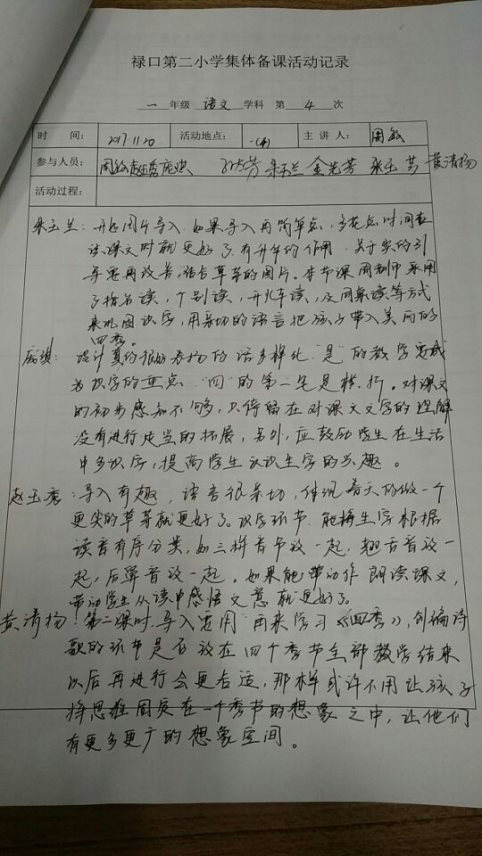 禄口第二小学集体备课活动记录
一 年级 语文 学科 第 4 次
时 间: 2017.11.20 活动地点: 一(4) 主 讲 人: 周敏
参与人员: 周敏 赵玉秀 庞琪 孙大芳 朱玉兰 金光芳 朱玉芳 黄清扬
活动过程:
朱玉兰: 开始图片导入,如果导入再简单点,多花点时间在
读课文时就更好了,有升华的作用。关于尖的引
导要用改善,结合草芽的图片。本节课周老师采用
了指名读,个别读,开火车读,及同桌读等方式
来巩固识字,用亲切的语言把孩子带入美丽的
四季。
庞琪: 设计真的很好,表扬的话多样化,"是"的教学要成
为识字的重点,"四"的第二笔是横折。对课文
的初步感知不够,只停留在对课文文字的理解
没有进行适当的拓展,另外,应鼓励学生在生活
中多识字,提高学生认识生字的兴趣。
赵玉秀: 导入有趣,语言很亲切,体现春天的做一个
更尖的草芽就更好了。识字环节,能将生字根据
读音有序分类,如三拼音节放一起,翘舌音放一
起,后鼻音放一起。如果能带动作朗读课文,
带动学生从读中感悟文意就更好了。
黄清扬: 第二课时,导入运用"再来学习《四季》",创编诗
歌的环节是否放在四个季节全部教学结束
以后再进行会更合适,那样或许不用让孩子
将思维固定在一个季节的想象之中,让他们
有更多更广的想象空间。